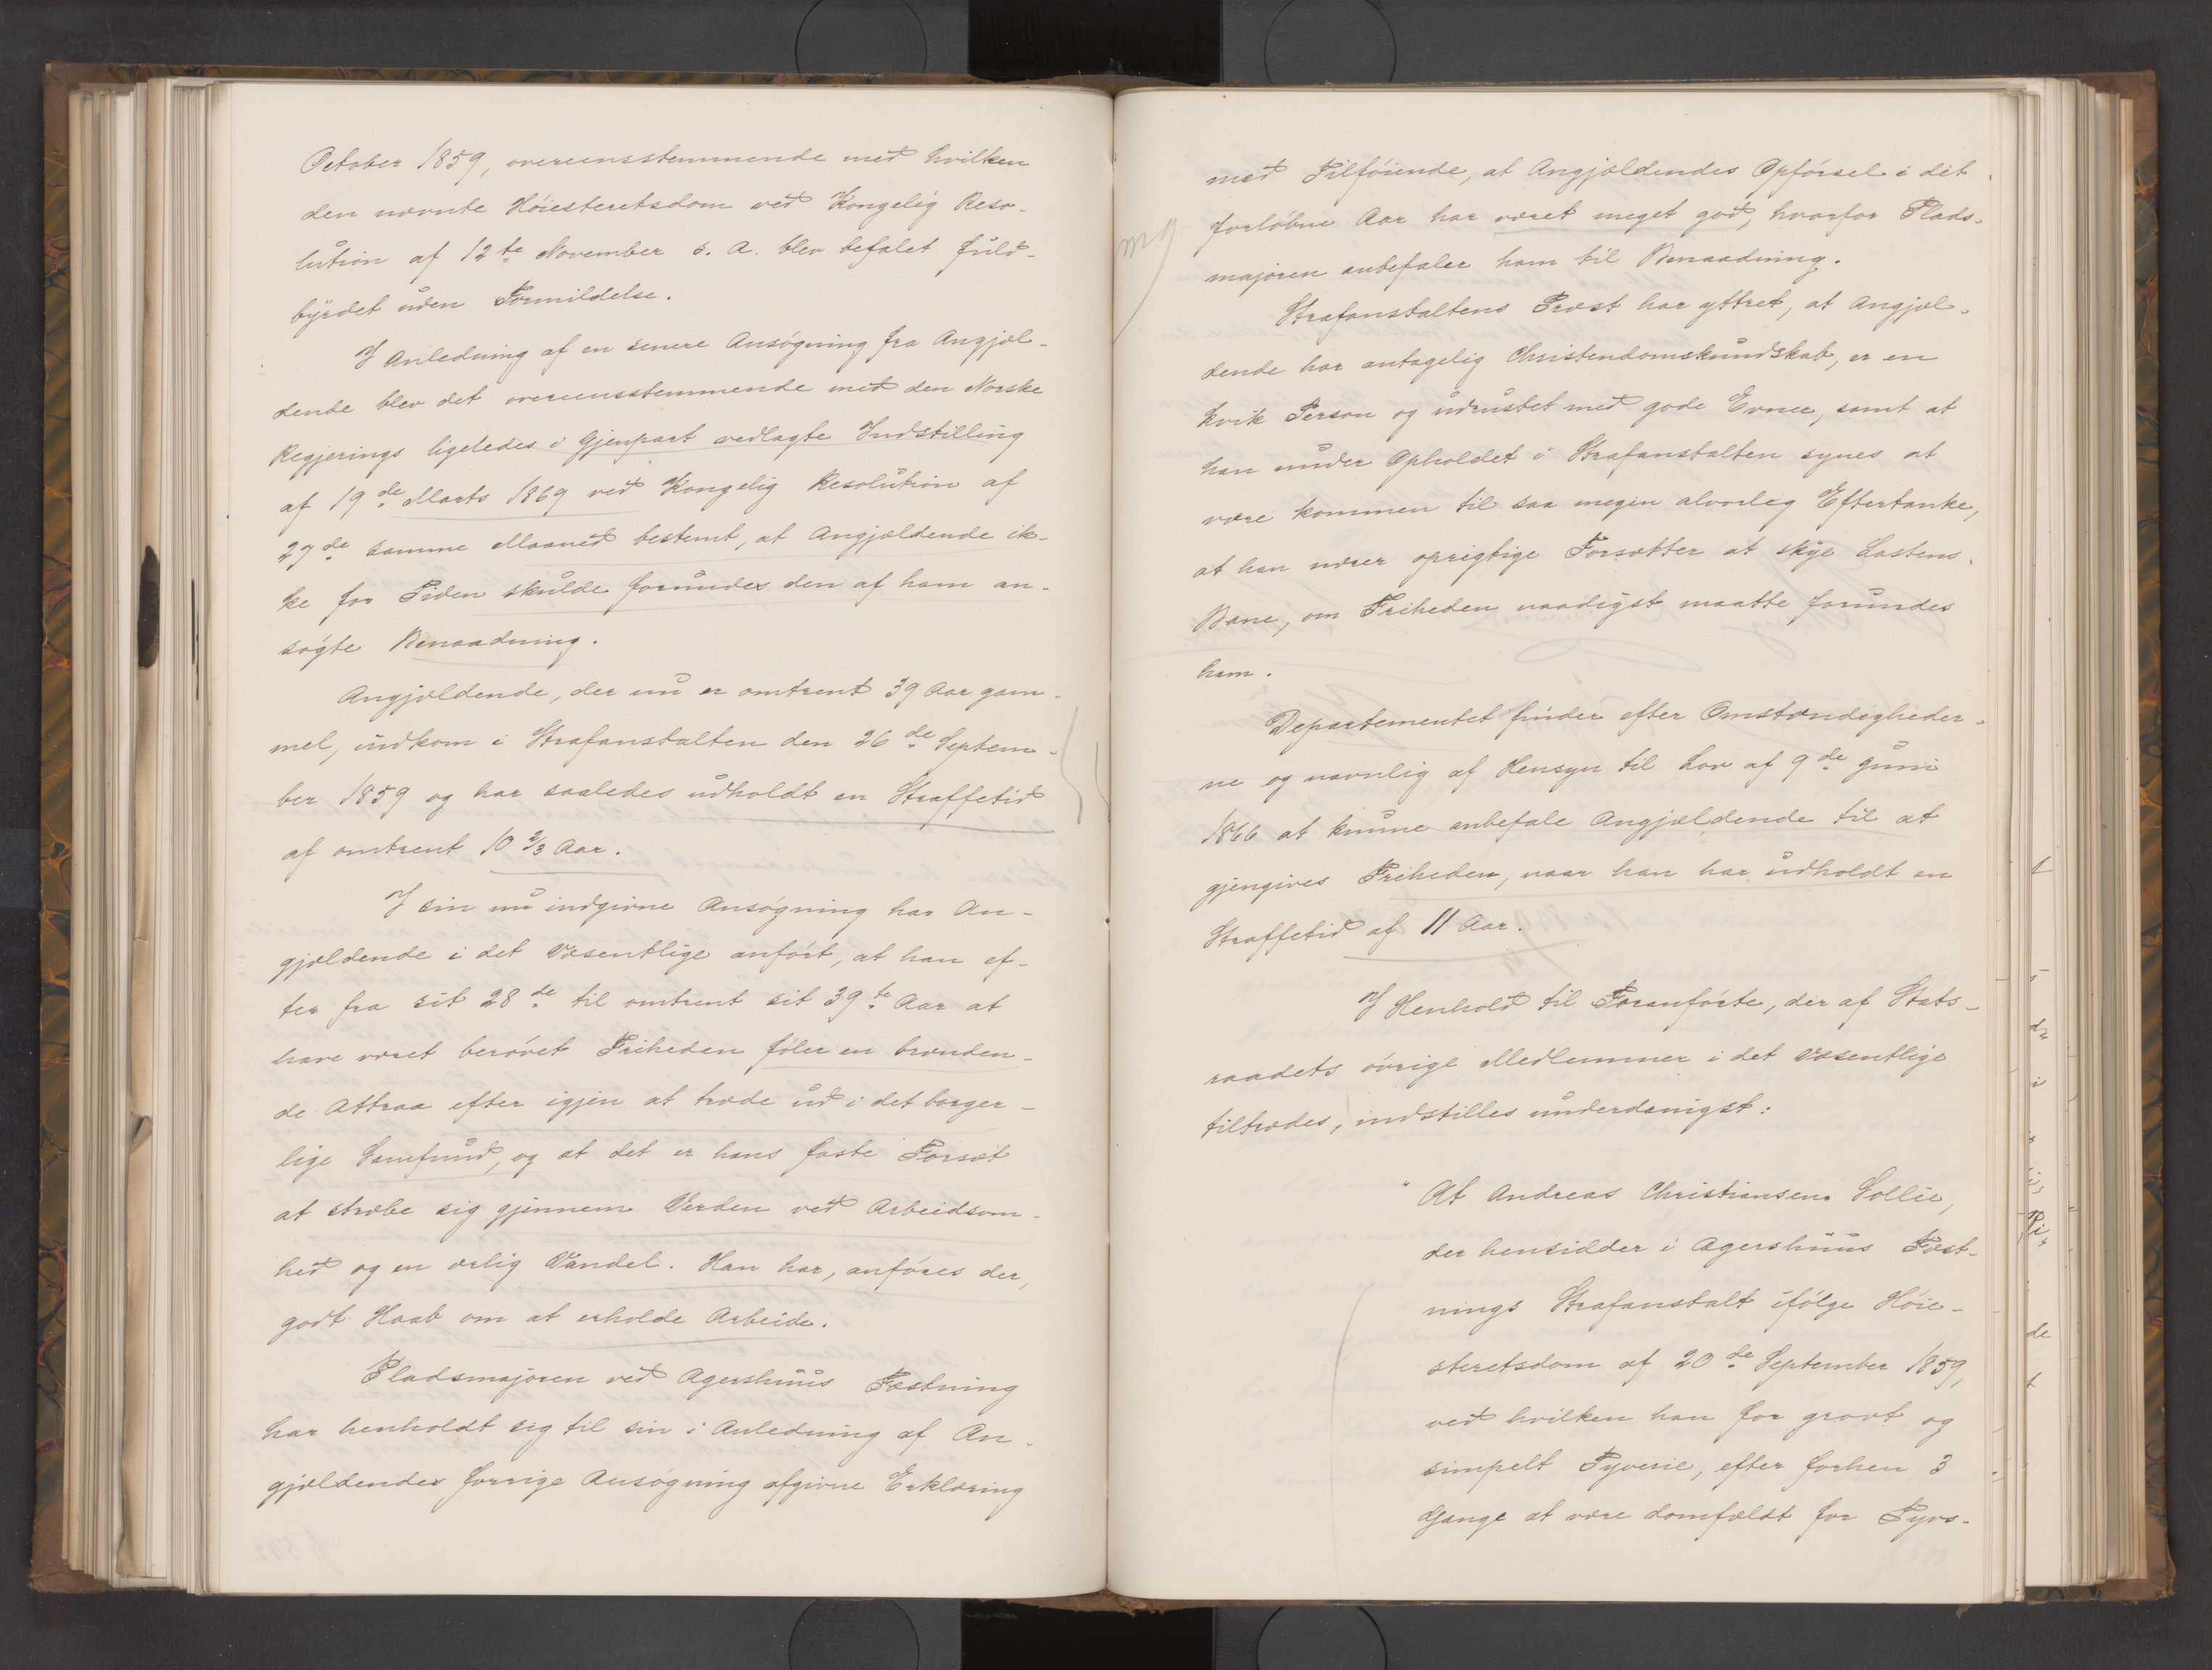 October 1859, overeensstemmende med hvilken
den nævnte Høiesteretsdom ved Kongelig Reso-
lution af 12te November s. A. blev befalet fuld-
byrdet uden Formildelse.
I Anledning af en senere Ansøgning fra Angjæl-
dende blev det overeensstemmende med den Norske
Regjerings ligeledes i Gjenpart vedlagte Indstilling
af 19de Marts 1869 ved Kongelig Resolution af
27de samme Maaned bestemt, at Angjældende ik-
ke for Tiden skulde forundes den af ham an-
søgte Benaadning.
Angjældende, der nu er omtrent 39 Aar gam-
mel, indkom i Strafanstalten den 26de Septem-
ber 1859 og har saaledes udholdt en Straffetid
af omtrent 10 2/3 Aar.
I sin nu indgivne Ansøgning har An-
gjældende i det Væsentlige anført, at han ef-
ter fra sit 28de til omtrent sit 39te Aar at
have været berøvet Friheden føler en brænden-
de Attraa efter igjen at træde ud i det borger-
lige Samfund, og at det er hans faste Forsæt
at stræbe sig gjennem Verden ved Arbeidsom-
hed og en ærlig Vandel. Han har, anføres der,
godt Haab om at erholde Arbeide.
Pladsmajoren ved Agershuus Fæstning
har henholdt sig til sin i Anledning af An-
gjældendes forrige Ansøgning afgivne Erklæring
med Tilføiende, at Angjældendes Opførsel i det
forløbne Aar har været meget god, hvorfor Plads-
mg
majoren anbefaler ham til Benaadning.
Strafanstaltens Præst har yttret, at Angjæl-
dende har antagelig Christendomskundskab, er en
kvik Person og udrustet med gode Evner, samt at
han under Opholdet i Strafanstalten synes at
være kommen til saa megen alvorlig Eftertanke,
at han nærer oprigtige Forsætter at skye Lastens
Bane, om Friheden naadigst maatte forundes
ham.
Departementet finder efter Omstændigheder-
ne og navnlig af Hensyn til Lov af 9de Juni
1866 at kunne anbefale Angjældende til at
gjengives Friheden, naar han har udholdt en
Straffetid af 11 Aar.
I Henhold til Foranførte, der af Stats-
raadets øvrige Medlemmer i det Væsentlige
tiltrædes, indstilles underdanigst:
"At Andreas Christiansen Sollie,
der hensidder i Agershuus Fæst-
nings Strafanstalt ifølge Høie-
steretsdom af 20de September 1859,
ved hvilken han for grovt og
simpelt Tyverie, efter forhen 3
Gange at være domfældt for Tyvs-